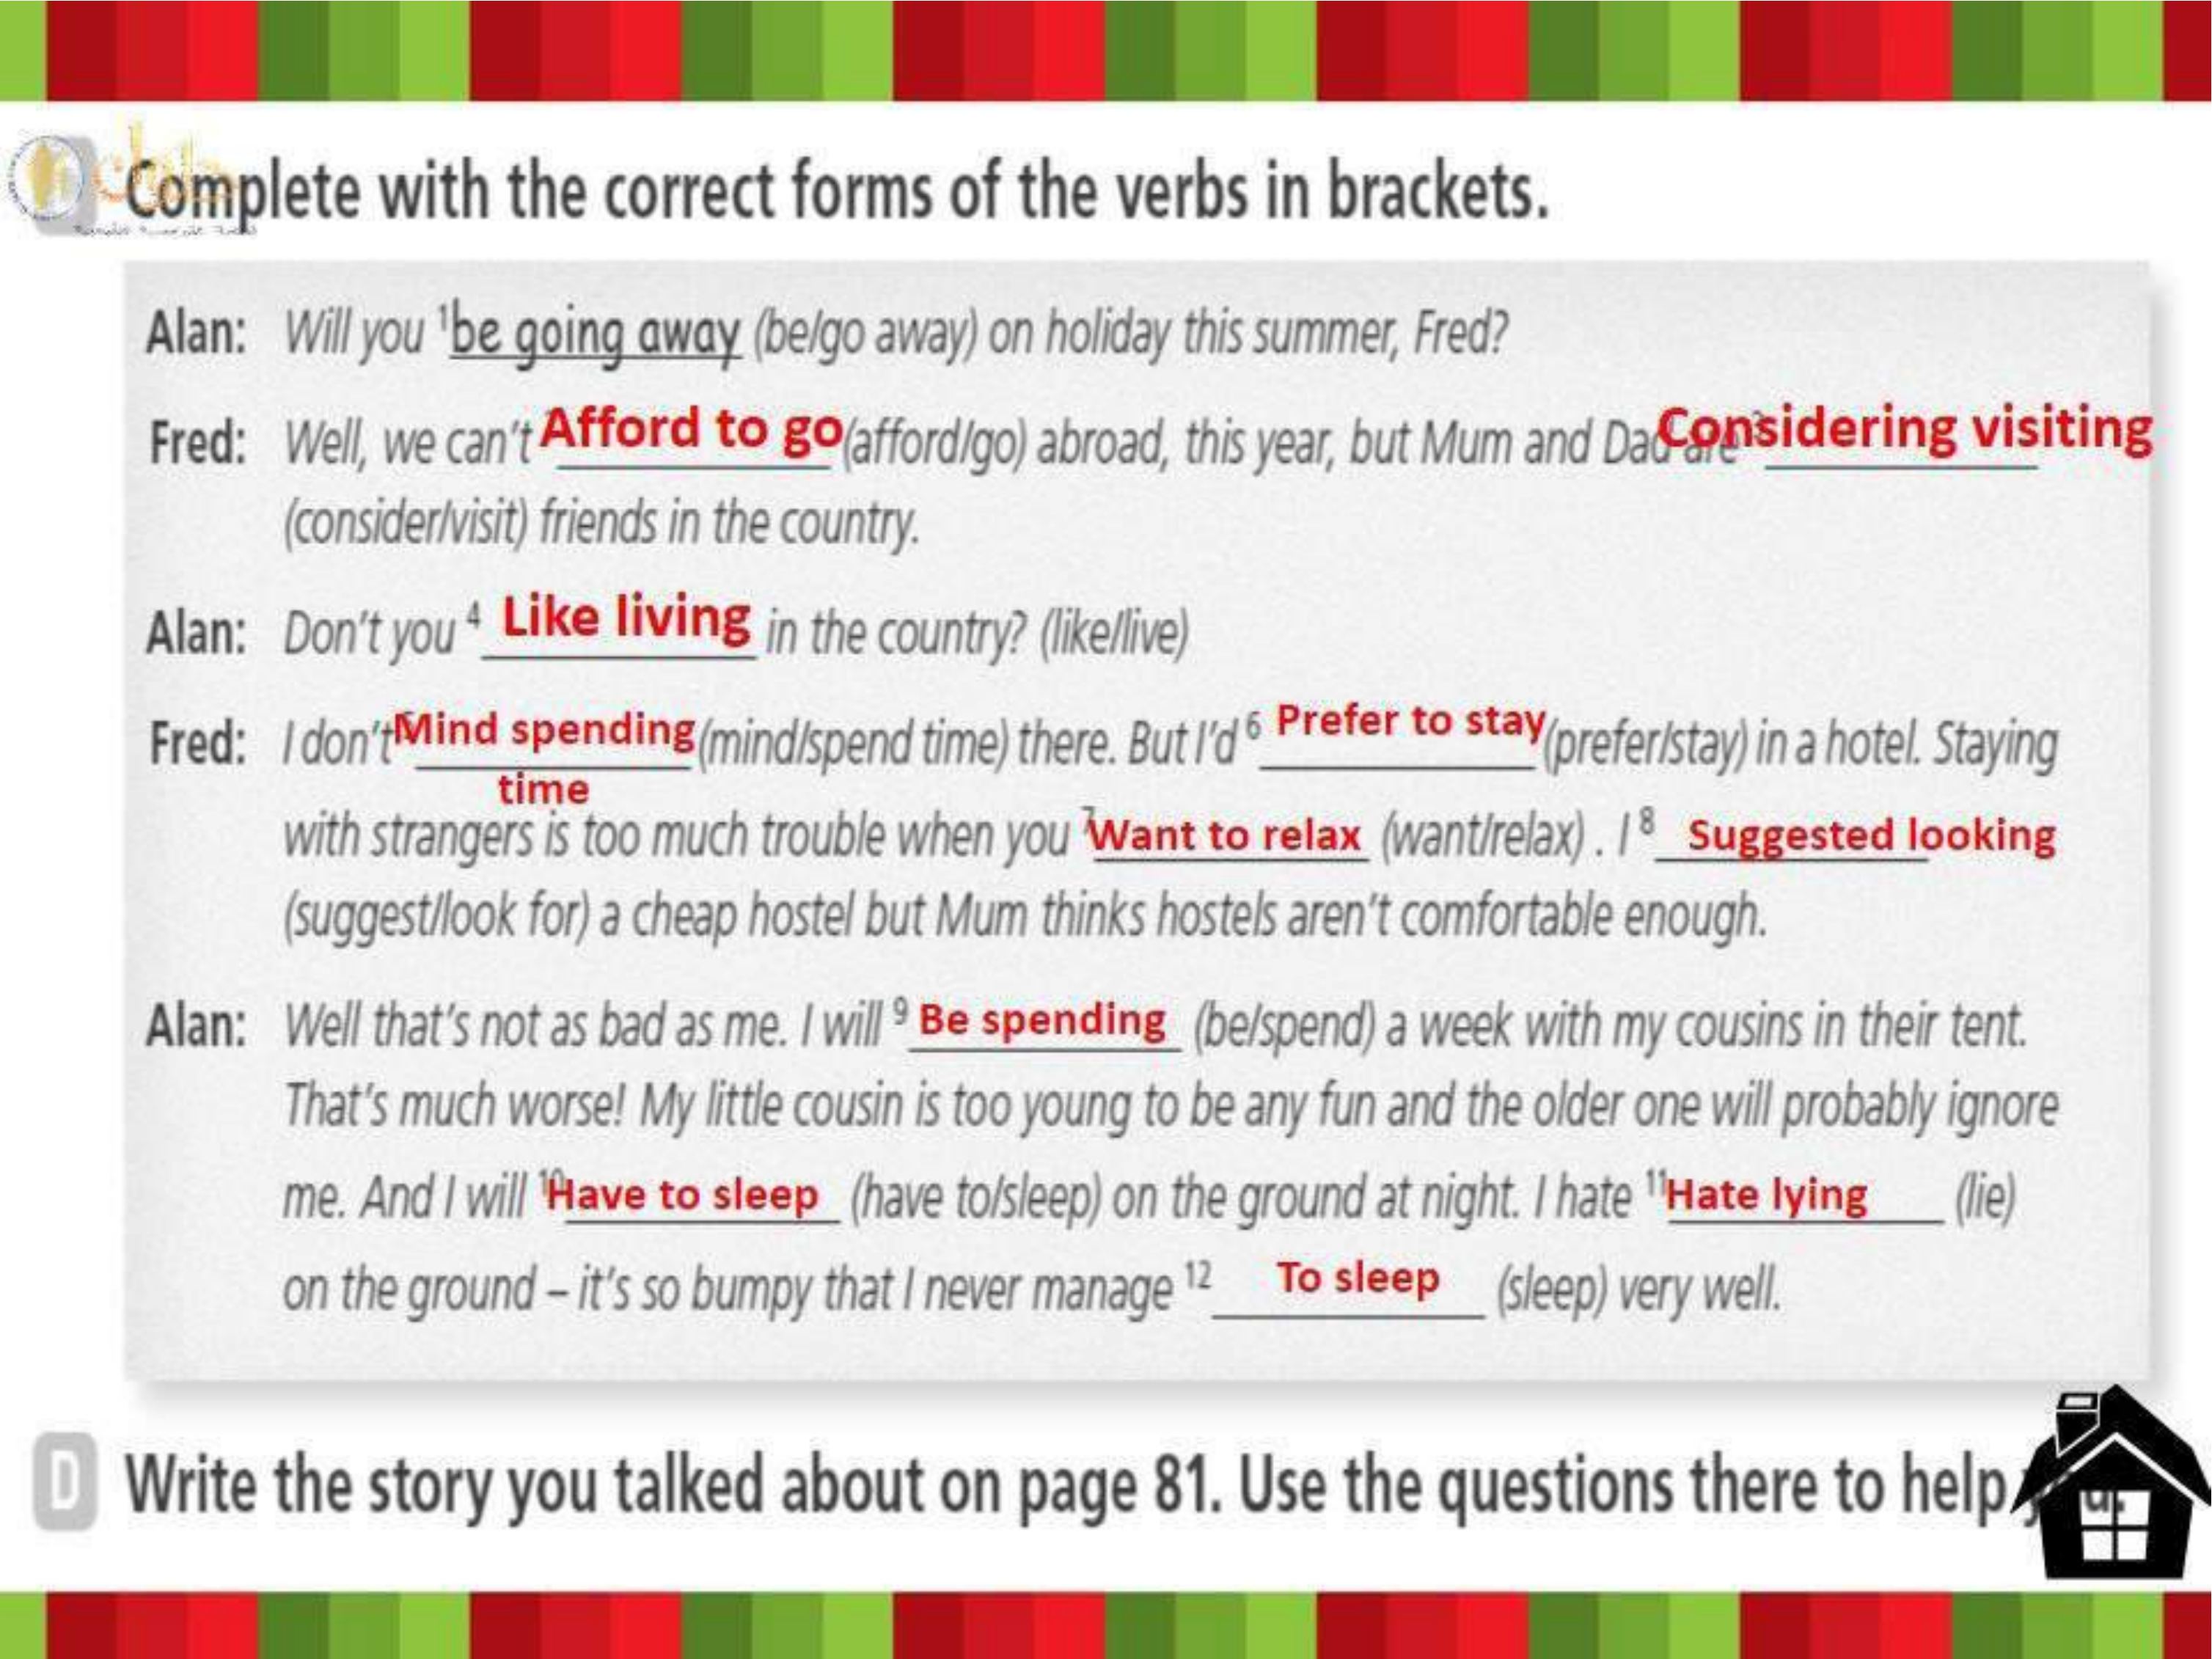 Complete with the correct forms of the verbs in brackets.
Alan: Will you ¹be going away (be/go away) on holiday this summer, Fred?
Fred: Well, we can't Afford to go (afford/go) abroad, this year, but Mum and Dad are Considering visiting
(consider/visit) friends in the country.
Alan: Don't you ⁴ Like living in the country? (like/live)
Fred: I don't Mind spending (mind/spend time) there. But I'd ⁶ Prefer to stay (prefer/stay) in a hotel. Staying
time
with strangers is too much trouble when you ⁷Want to relax (want/relax) . I ⁸ Suggested looking
(suggest/look for) a cheap hostel but Mum thinks hostels aren't comfortable enough.
Alan: Well that's not as bad as me. I will ⁹ Be spending (be/spend) a week with my cousins in their tent.
That's much worse! My little cousin is too young to be any fun and the older one will probably ignore
me. And I will ¹⁰Have to sleep (have to/sleep) on the ground at night. I hate ¹¹Hate lying (lie)
on the ground – it's so bumpy that I never manage ¹² To sleep (sleep) very well.
D Write the story you talked about on page 81. Use the questions there to help